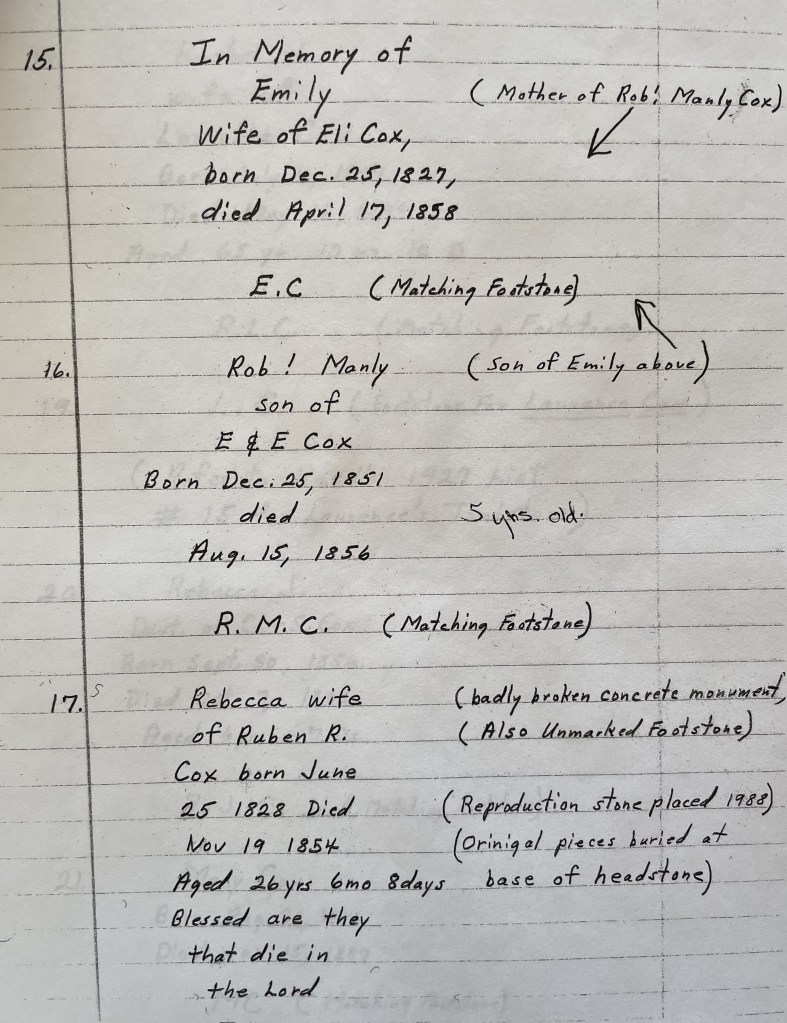 15. In Memory of
Emily (Mother of Rob! Manly Cox)
Wife of Eli Cox,
born Dec. 25, 1827,
died April 17, 1858
E.C (Matching Footstone)
16. Rob! Manly (son of Emily above)
son of
E & E Cox
Born Dec. 25, 1851
died 5 yrs. old.
Aug. 15, 1856
R. M. C. (Matching Footstone)
17. S Rebecca wife (badly broken concrete monument,
of Ruben R. (Also Unmarked Footstone)
Cox born June
25 1828 Died (Reproduction stone placed 1988)
Nov 19 1854 (Orinigal pieces buried at
Aged 26yrs 6mo 8days base of headstone)
Blessed are they
that die in
the Lord